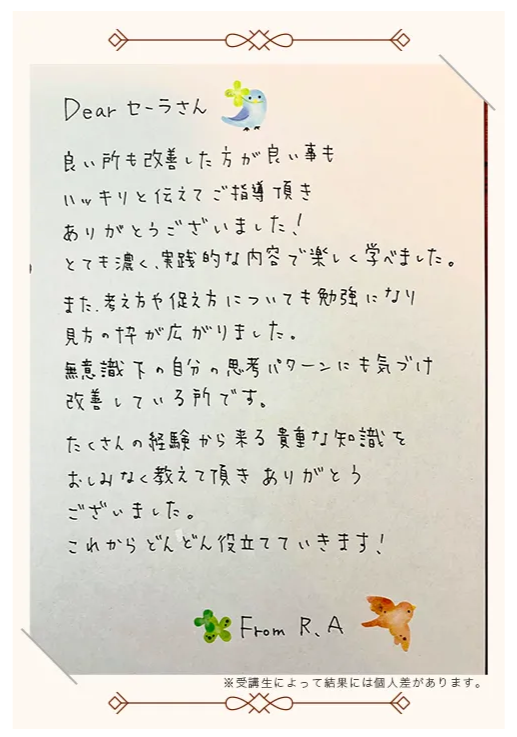 Dear セーラさん
良い所も改善した方が良い事も
ハッキリと伝えてご指導頂き
ありがとうございました！
とても濃く、実践的な内容で楽しく学べました。
また、考え方や促え方についても勉強になり
見方の枠が広がりました。
無意識下の自分の思考パターンにも気づけ
改善している所です。
たくさんの経験から来る貴重な知識を
おしみなく教えて頂きありがとう
ございました。
これからどんどん役立てていきます！
From R.A
※受講生によって結果には個人差があります。